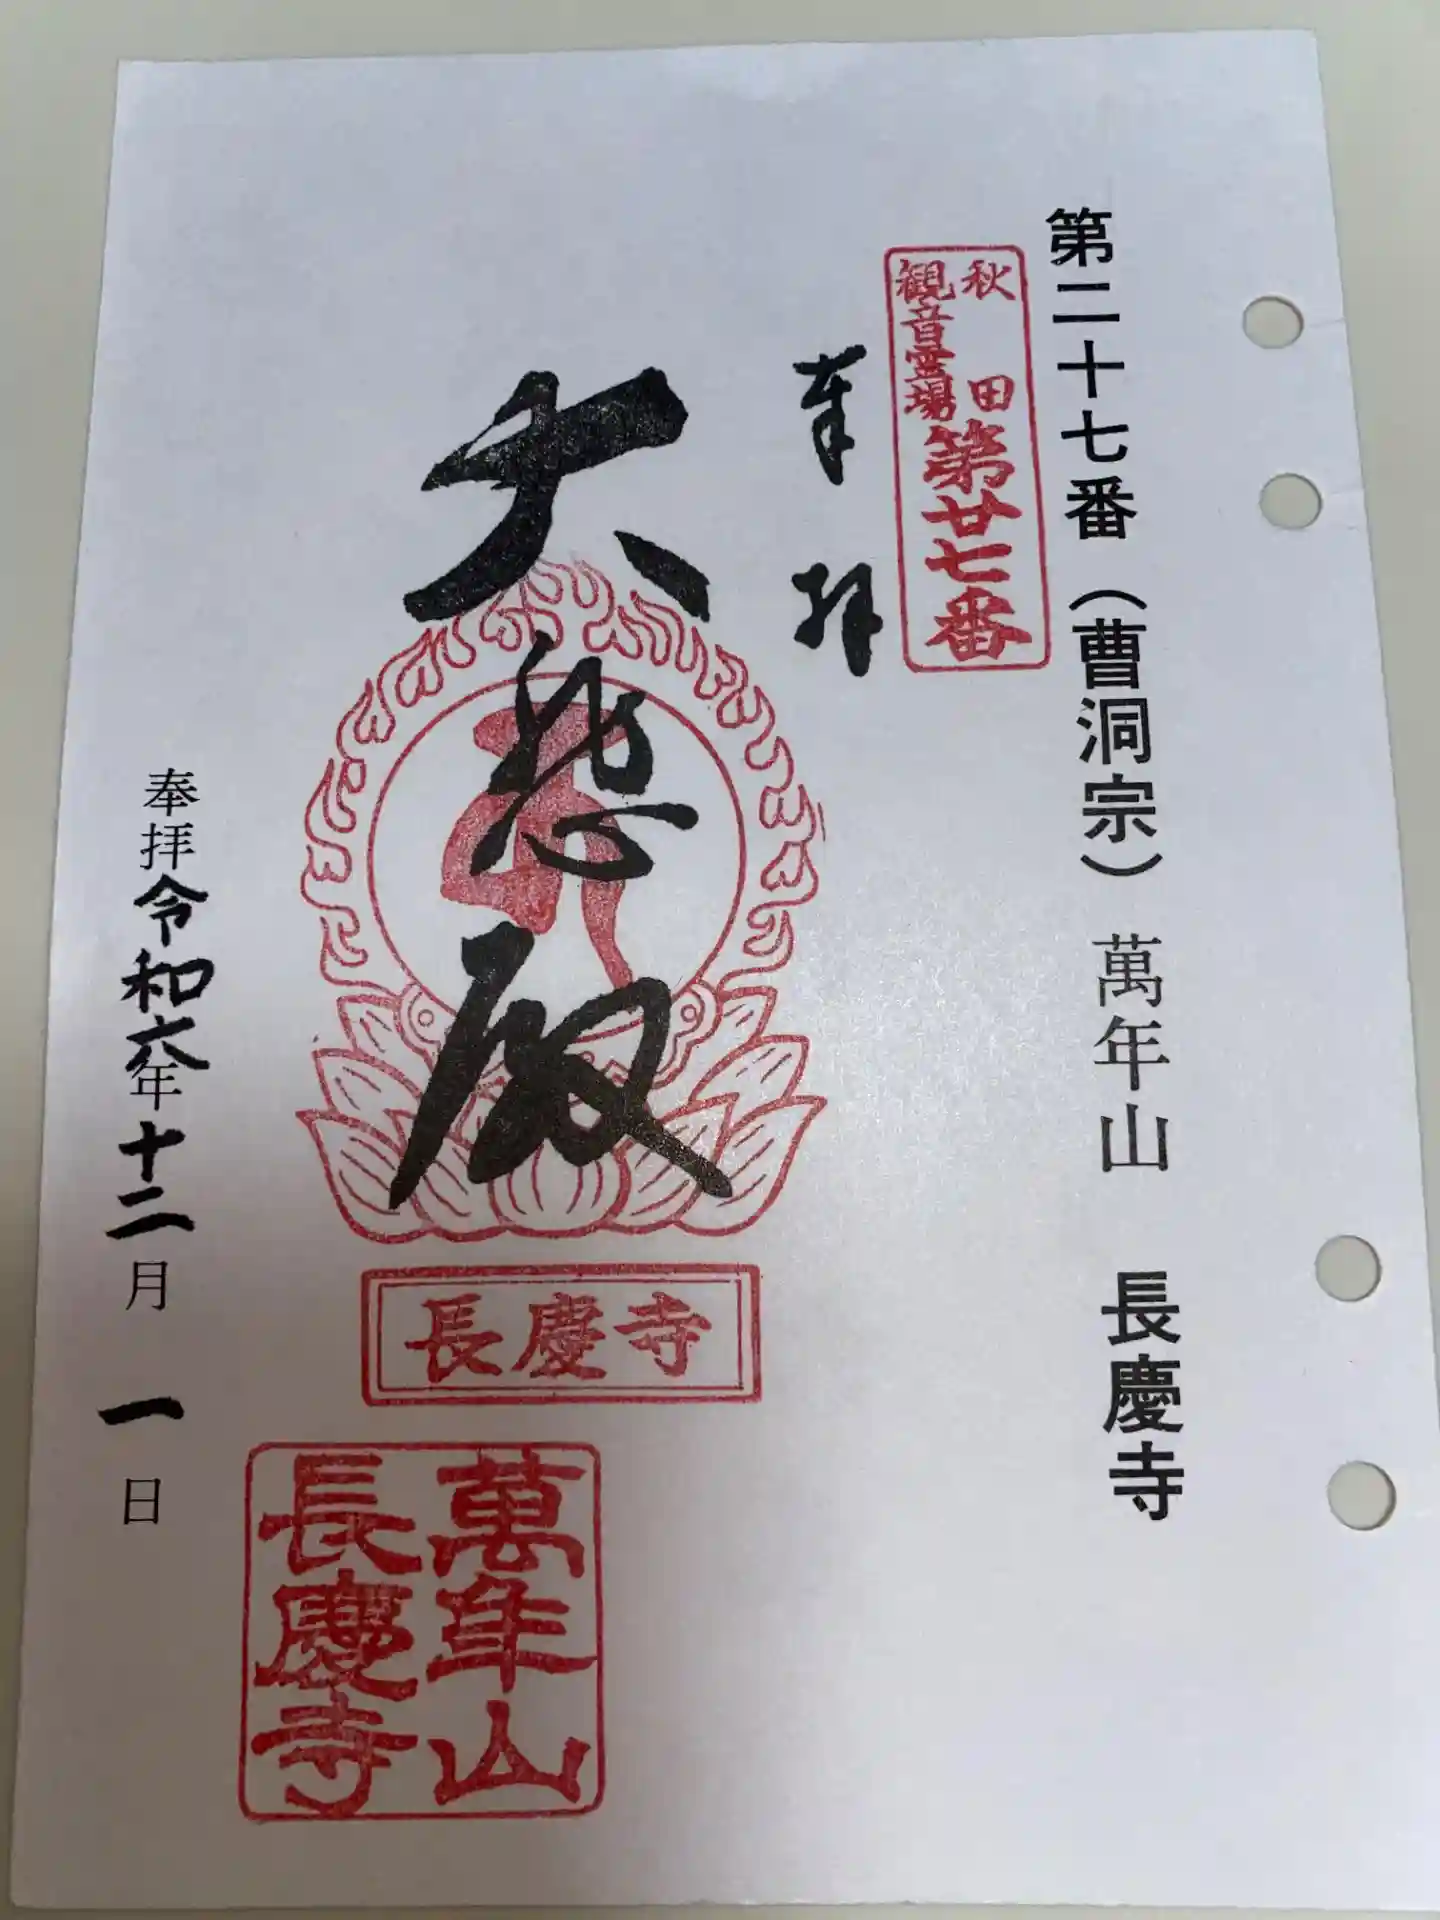 第二十七番（曹洞宗）萬年山　長慶寺
秋田
観音霊場
第廿七番
奉拝
大悲殿
長慶寺
萬年山
長慶寺
奉拝令和六年十二月一日